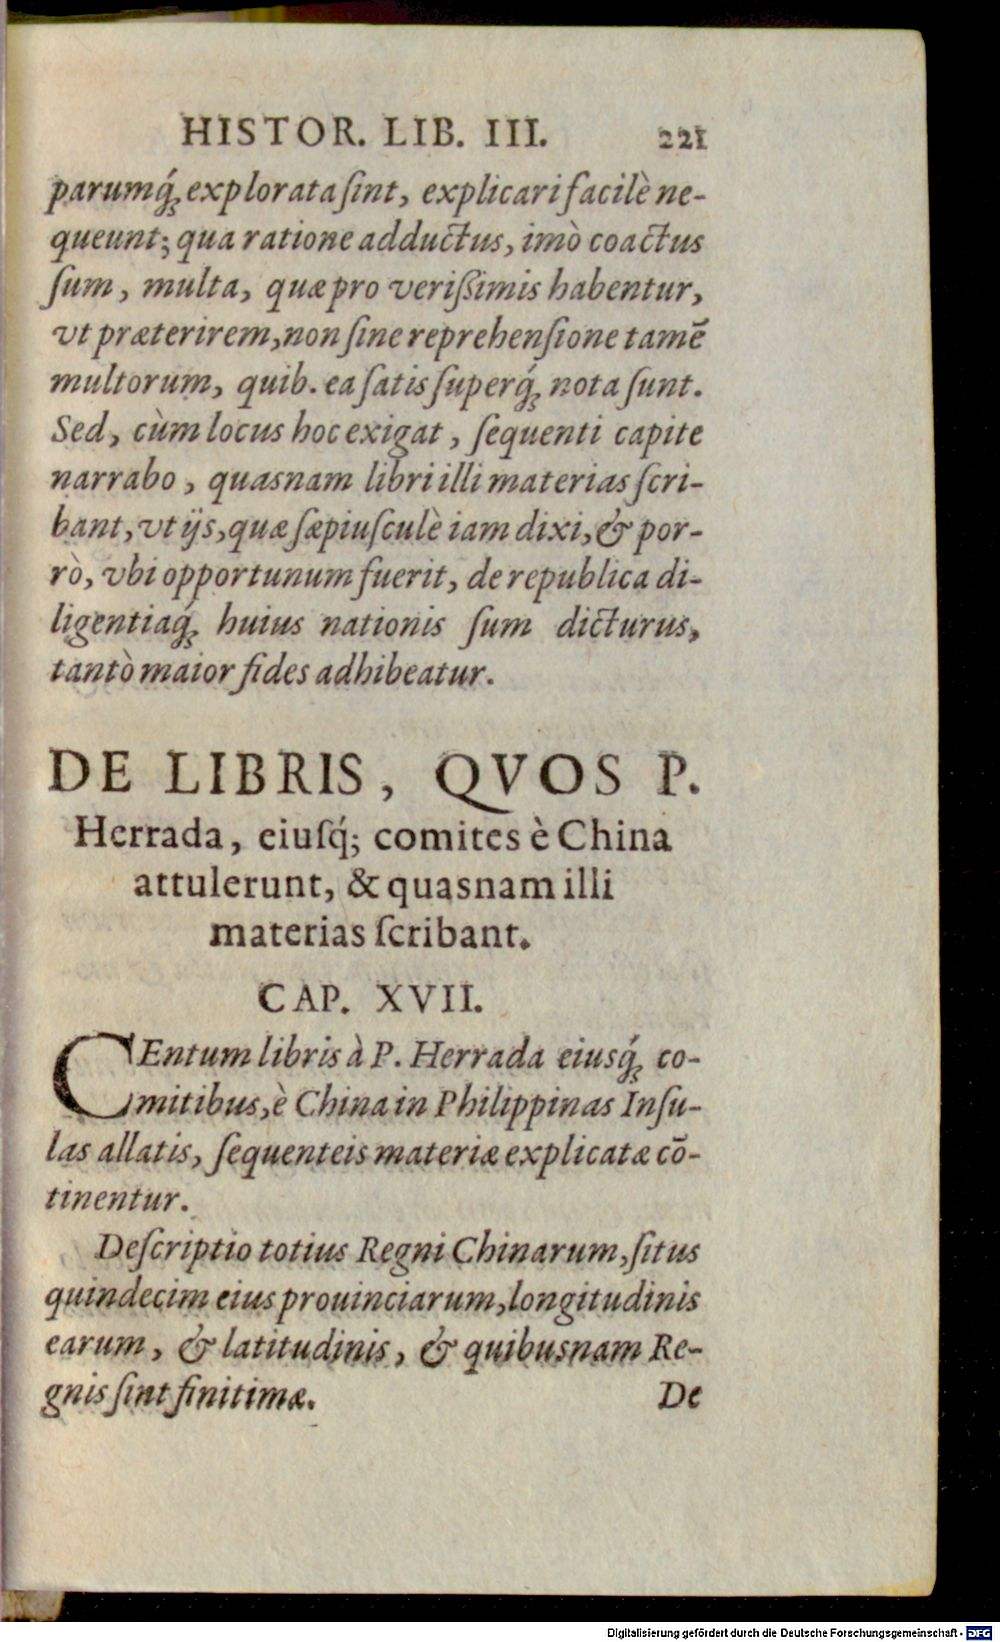 HISTOR. LIB. III. 221
parumq́ꝫ explorata ſint, explicari facilè ne-
queunt; qua ratione adductus, imò coactus
ſum, multa, quæ pro veriſsimis habentur,
vt præterirem, non ſine reprehenſione tamē
multorum, quib. ea ſatis ſuperq́ꝫ nota ſunt.
Sed, cùm locus hoc exigat, ſequenti capite
narrabo, quasnam libri illi materias ſcri-
bant, vt ijs, quæ ſæpiuſculè iam dixi, & por-
rò, vbi opportunum fuerit, de republica di-
ligentiaq́ꝫ huius nationis ſum dicturus,
tantò maior fides adhibeatur.
DE LIBRIS, QVOS P.
Herrada, eiuſq́; comites è China
attulerunt, & quasnam illi
materias ſcribant.
CAP. XVII.
CEntum libris à P. Herrada eiusq́ꝫ co-
mitibus, è China in Philippinas Inſu-
las allatis, ſequenteis materiæ explicatæ cō-
tinentur.
Deſcriptio totius Regni Chinarum, ſitus
quindecim eius prouinciarum, longitudinis
earum, & latitudinis, & quibusnam Re-
gnis ſint finitimæ. De
Digitalisierung gefördert durch die Deutsche Forschungsgemeinschaft - DFG